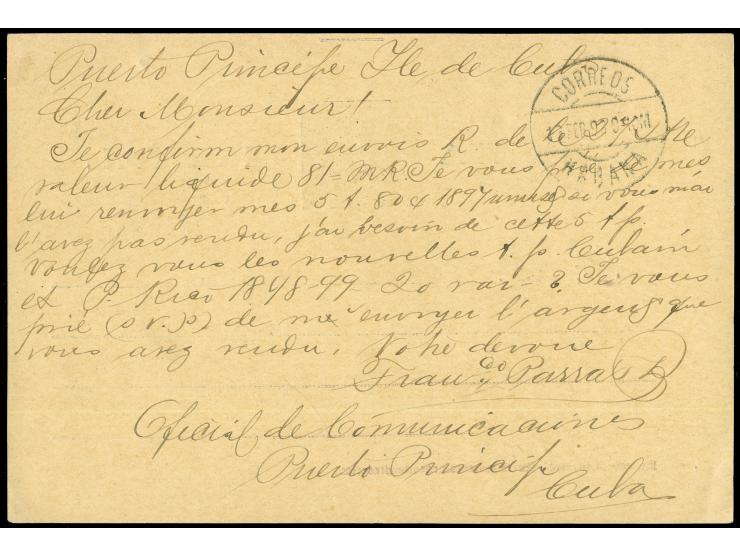 Puerto Principe Ile de Cuba
CORREOS
HABANA
Cher Monsieur!
Je confirm mon envois R. de
valeur liquide 81- MR. Je vous mes
lui renvoyer mes 5 t. 804 1897 si vous
l'avez pas rendu, j'ai besoin de cette 5 t p.
Voulez vous les nouvelles t. p. Cubain
et P. Rico 1898-99 20 var- ? Je vous
prie (s v. p) de me envoyer l'argent que
vous avez rendu. Votre devoue
Parra
Oficial de Comunicaciones
Puerto Principe
Cuba